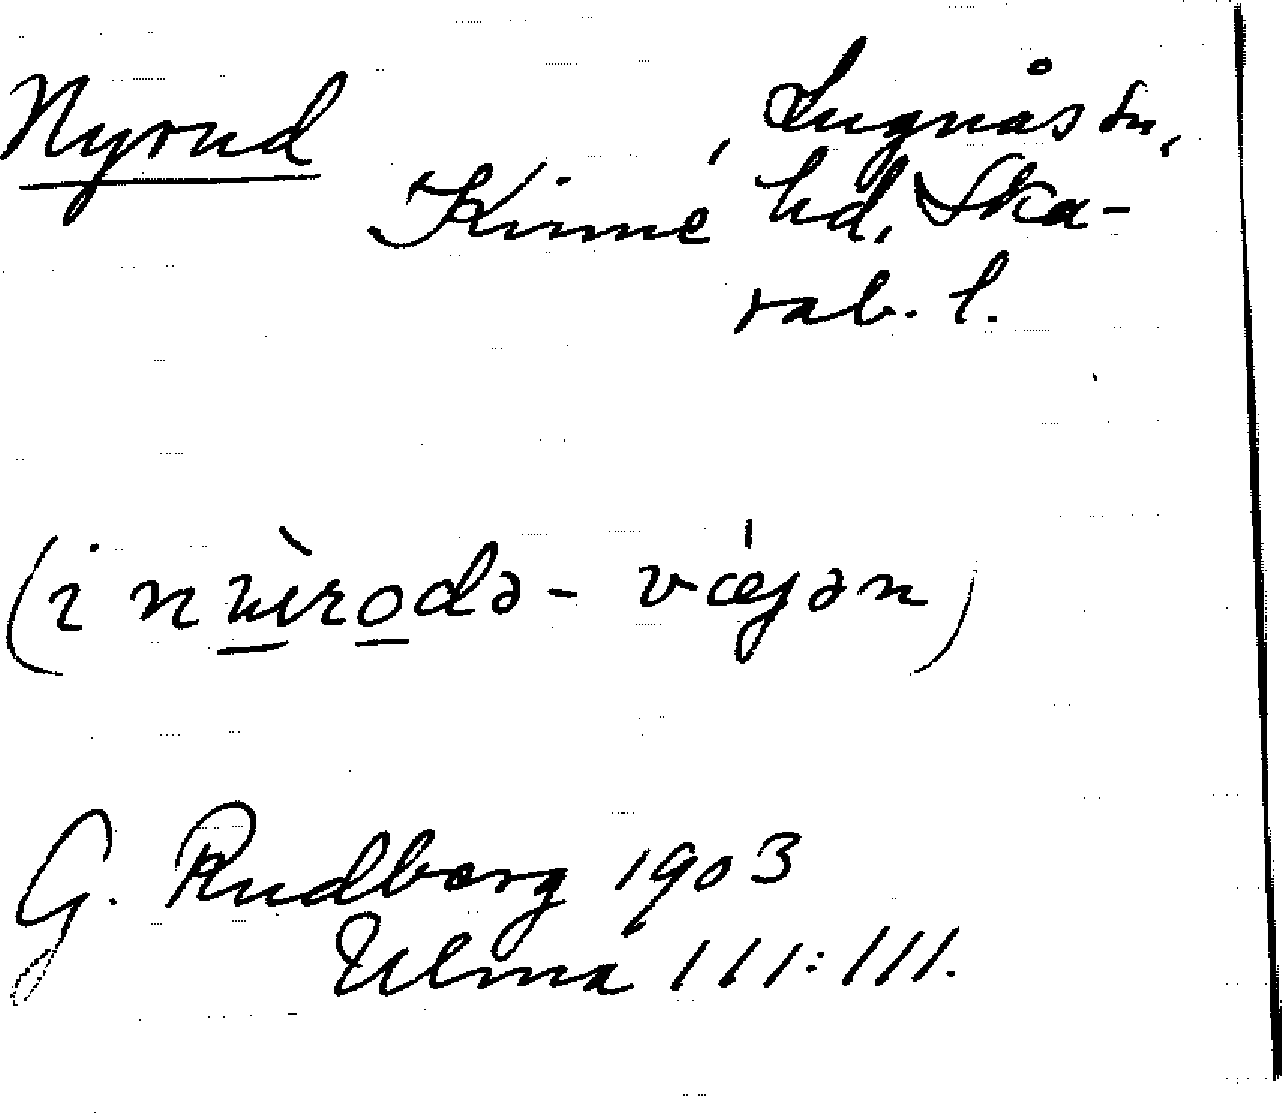 Nyrud
Lugnås sn,
Kinne hd, Ska-
rab. l.
(i nẁrodə - væ'jən)
G. Rudberg 1903
Ulma 111:111.